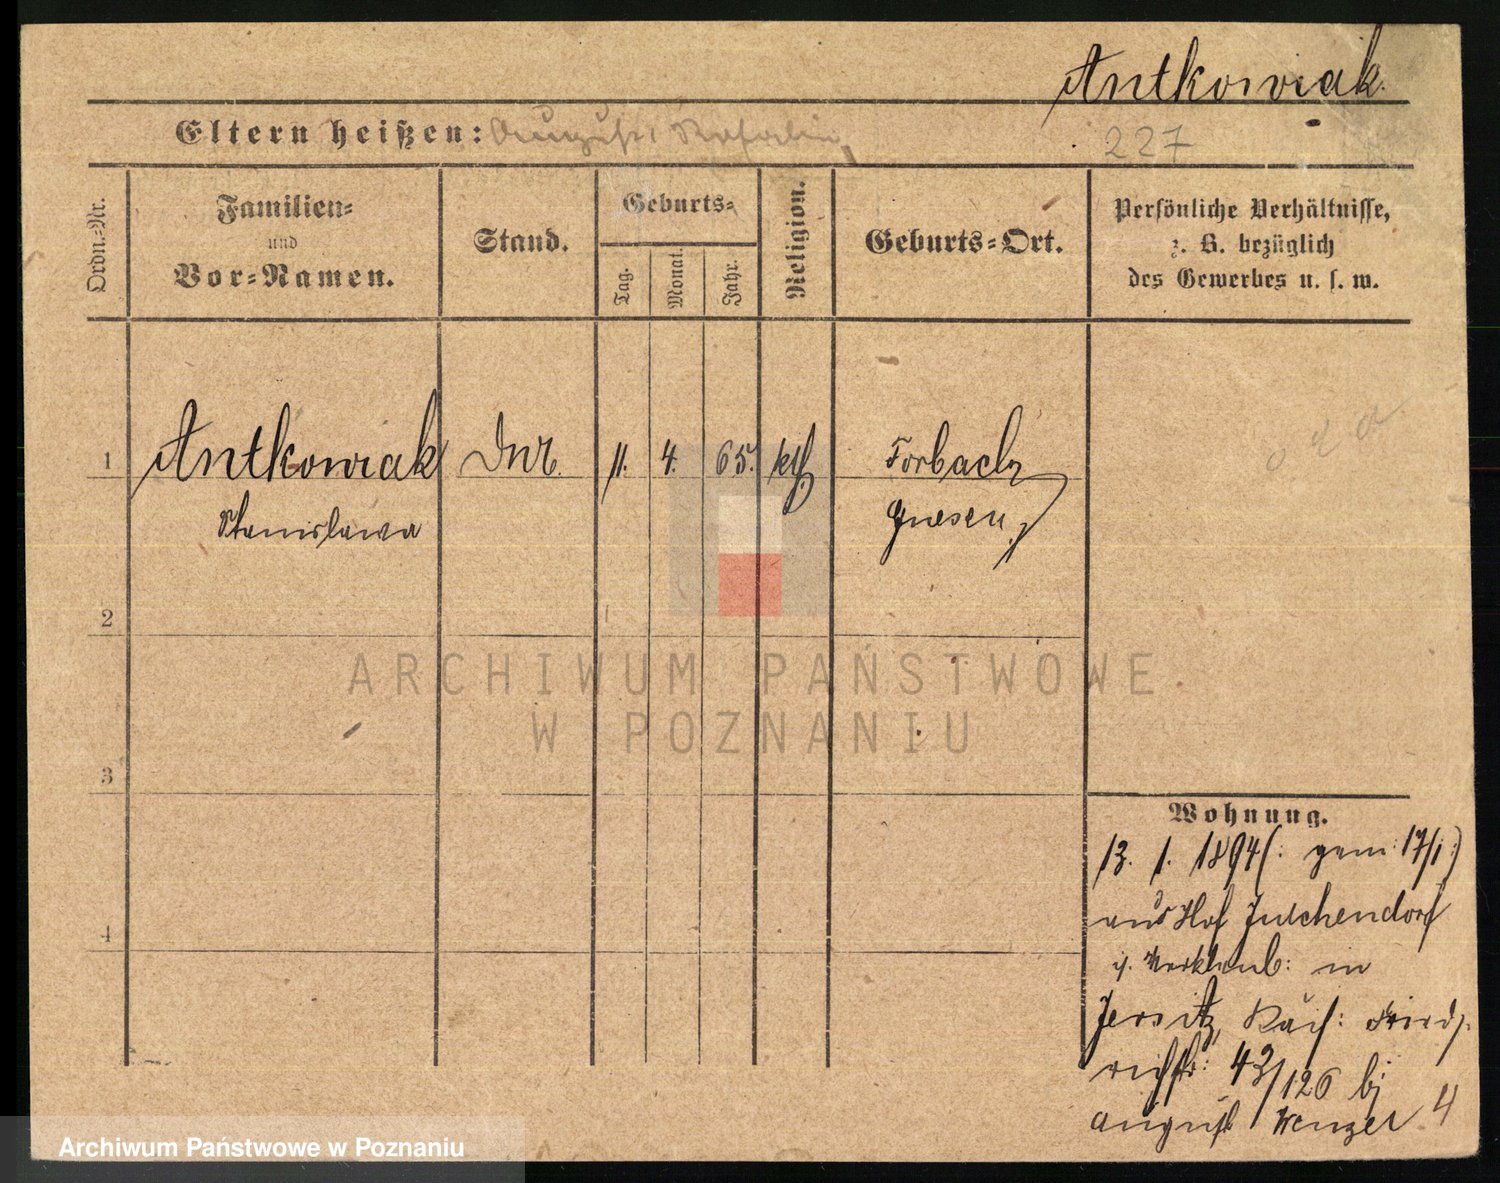 Antkowiak.
Eltern heißen: August Rosalie
227
Ordn.-Nr.
Familien-
und
Vor-Namen.
Stand.
Geburts-
Tag.
Monat.
Jahr.
Religion.
Geburts-Ort.
Persönliche Verhältnisse,
z. B. bezüglich
des Gewerbes u. s. w.
1 Antkowiak 11. 4. 65. kth Forbach
Stanislawa Gnesen
2
3
4
Wohnung.
13. 1. 1894 (: gem: 17/1:)
aus Hof
in
Jersitz, Kais: Fried-
richstr: 43/126 bj
August Wenzel 4
ARCHIWUM PAŃSTWOWE
W POZNANIU
Archiwum Państwowe w Poznaniu